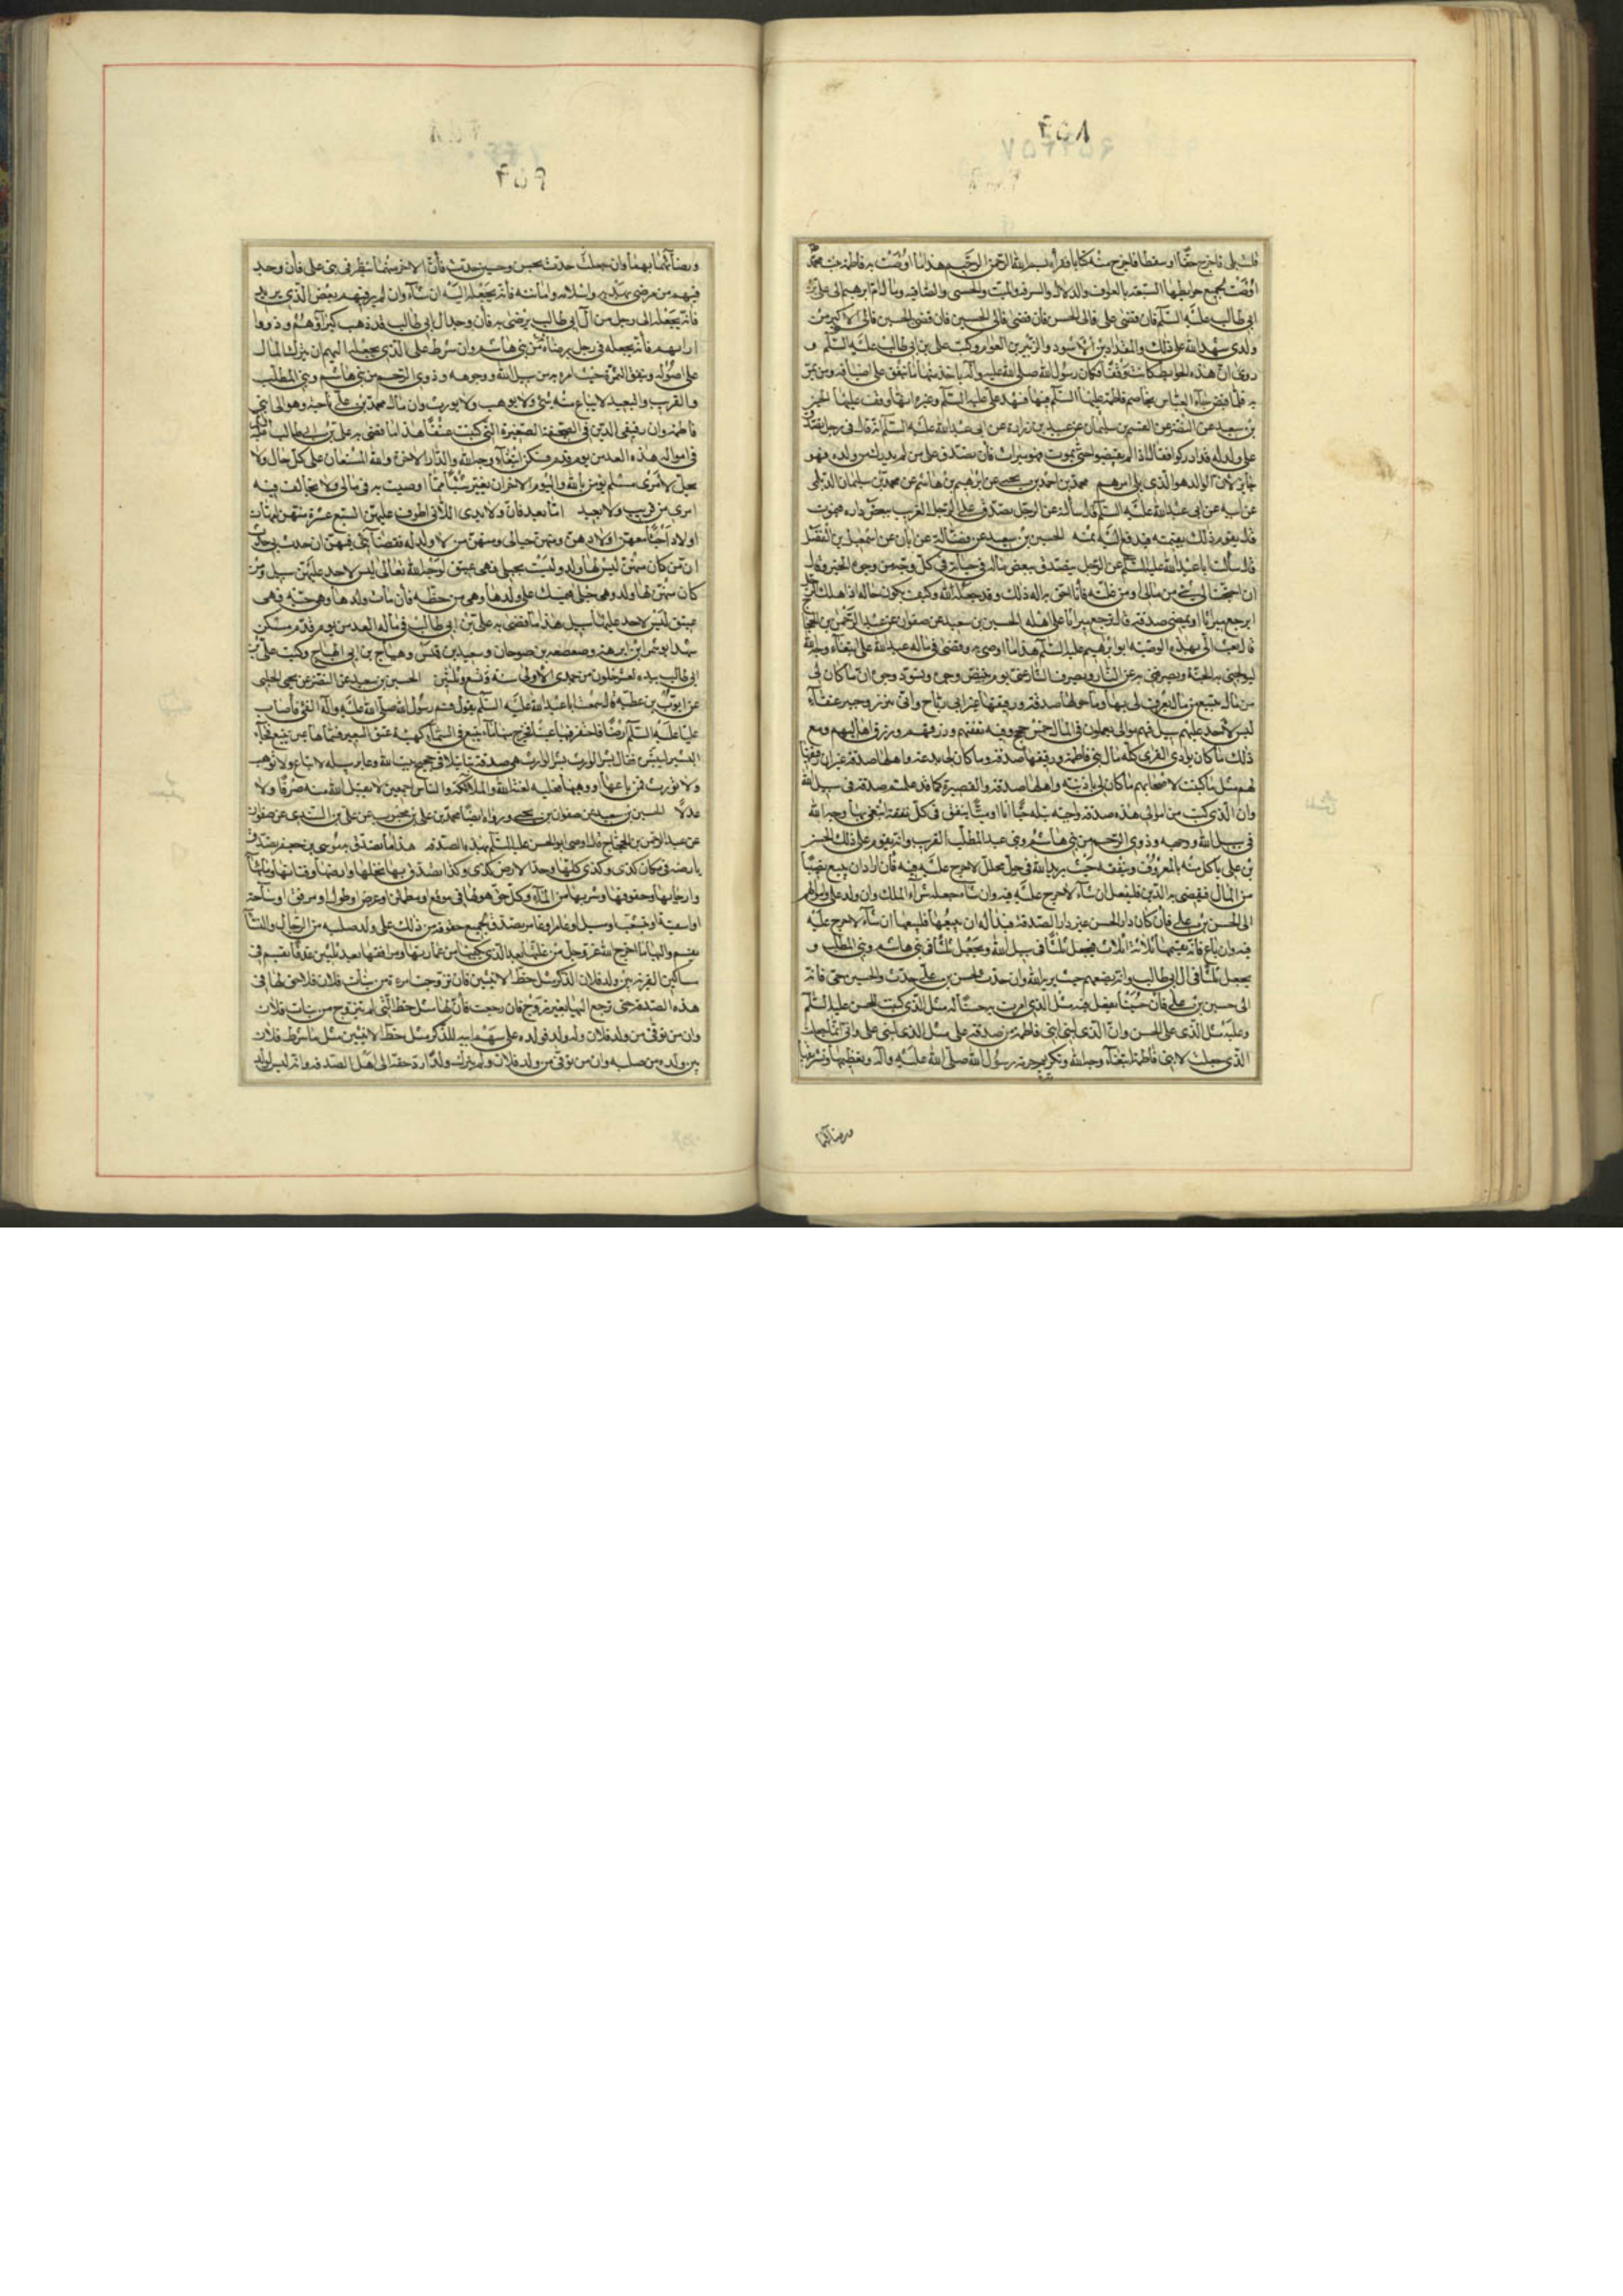 قلت بلى فاخرج حقا او سفطا فاخرج منه كتابا فقرأه بسم الله الرحمن الرحيم هذا ما اوصت به فاطمة بنت محمد
اوصت بجميع حوايطها السبعة بالعواف والدلال والبرقة والميثب والحسنى والصافيه ومال ام ابرهيم الى على بن
ابى طالب عليه السلام فان مضى على فالى الحسن فان مضى فالى الحسين فان مضى الحسين فالى الاكبر من
ولدى شهد الله على ذلك والمقداد بن الاسود والزبير بن العوام وكتب على بن ابى طالب عليه السلام و
روى ان هذه الحوايط كانت وقفا فكان رسول الله صلى الله عليه وآله ياخذ منها ما ينفق على اضيافه ومن يمر
به فلما قبض جاء العباس يخاصم فاطمة عليها السلام فيها فشهد على عليه السلام وغيره انها وقف عليها الحسين
بن سعيد عن النضر عن القسم بن سليمان عن عبيد بن زرارة عن ابى عبد الله عليه السلام انه قال فى رجل تصدق
على ولد له قد ادركوا فقال اذا لم يقبضوا حتى يموت فهو ميراث فان تصدق على من لم يدرك من ولده فهو
جايز لان الوالد هو الذى يلى امرهم محمد بن احمد بن يحيى عن ابرهيم بن هاشم عن محمد بن سليمان الديلمى
عن ابيه عن ابى عبد الله عليه السلام قال سألته عن الرجل يتصدق على الرجل الغريب ببعض داره فيموت
قال يقوم ذلك بقيمته فيدفع اليه ثمنه الحسين بن سعيد عن فضالة عن ابان عن اسمعيل بن الفضل
قال سألت ابا عبد الله عليه السلام عن الرجل يتصدق ببعض ماله فى حياته فى كل وجه من وجوه الخير وقال
ان احتجت الى شئ من مالى او من غلته فانا احق به اله ذلك وقد جعله لله وكيف يكون حاله اذا هلك الرجل
ايرجع ميراثا او يمضى صدقة قال يرجع ميراثا على اهله الحسين بن سعيد عن صفوان عن عبد الرحمن بن الحجاج
قال بعث الى بهذه الوصيه ابو ابرهيم عليه السلام هذا ما اوصى به وقضى فى ماله عبد الله على ابتغاء وجه الله
ليولجنى به الجنة ويصرفنى به عن النار ويصرف النار عنى يوم تبيض وجوه وتسود وجوه ان ما كان لى
من مال بينبع من مال يعرف لى فيها وما حولها صدقة ورقيقها غير ابى رباح وابى نيزر وجبير عتقاء
ليس لاحد عليهم سبيل فهم موالى يعملون فى المال خمس حجج وفيه نفقتهم ورزقهم ورزق اهاليهم ومع
ذلك ما كان بوادى القرى كله مال بنى فاطمة ورقيقها صدقة وما كان لى بديمة واهلها صدقة غير ان رقيقها
لهم مثل ما كتبت لاصحابهم وما كان لى باذينة واهلها صدقة والقصيرة كما قد علمتم صدقة فى سبيل الله
وان الذى كتبت من اموالى هذه صدقة واجبة بتلة حيا انا او ميتا ينفق فى كل نفقة ابتغى بها وجه الله
فى سبيل الله ووجهه وذوى الرحم من بنى هاشم وبنى عبد المطلب القريب وانه يقوم على ذلك الحسن
بن على ياكل منه بالمعروف وينفقه حيث يريد الله فى حل محلل لا حرج عليه فيه فان اراد ان يبيع نصيبا
من المال فيقضى به الدين فليفعل ان شاء لا حرج عليه فيه وان شاء جعله شراء الملك وان ولد على واموالهم
الى الحسن بن على فان كان دار الحسن غير دار الصدقة فبدا له ان يبيعها فليبعها ان شاء لا حرج عليه
فيه وان باع فانه يقسمها ثلاثة اثلاث فيجعل ثلثا فى سبيل الله ويجعل ثلثا فى بنى هاشم وبنى المطلب و
يجعل ثلثا فى ال ابى طالب وانه يضعهم حيث يريد الله وان حدث بالحسن بن على حدث والحسين حى فانه
الى حسين بن على فان حسينا يفعل فيه مثل الذى امرت به حسنا له مثل الذى كتبت للحسن عليه السلام
وعليه مثل الذى على الحسن وان الذى لبنى ابنى فاطمة من صدقة على مثل الذى لبنى على وانى انما جعلت
الذى جعلت لابنى فاطمة ابتغاء وجه الله وتكريم حرمة رسول الله صلى الله عليه وآله وتعظيمها وتشريفها
ورضائهما
ورضائهما بهما وان جعلت حدث بحسن وحسين حدث فان الاخر منهما ينظر فى بنى على فان وجد
فيهم من يرضى بهديه واسلامه وامانته فانه يجعله اليه ان شاء وان لم ير فيهم بعض الذى يريد
فانه يجعله الى رجل من ال ابى طالب يرضى به فان وجد ال ابى طالب قد ذهب كبراؤهم وذووا
ارائهم فانه يجعله فى رجل يرضاه من بنى هاشم وان شرط على الذى يجعله اليهم ان يترك المال
على اصوله وينفق الثمرة حيث امره به من سبيل الله ووجوهه وذوى الرحم من بنى هاشم وبنى المطلب
والقريب والبعيد لا يباع منه شئ ولا يوهب ولا يورث وان مال محمد بن على ناحية وهو الى ابنى
فاطمة وان رقيقى الذين فى الصحيفة الصغيرة التى كتبت عتقا هذا ما قضى به على بن ابى طالب
فى امواله هذه الغد من يوم قدم مسكن ابتغاء وجه الله والدار الاخرة والله المستعان على كل حال ولا
يحل لامرى مسلم يؤمن بالله واليوم الاخر ان يغير شيئا مما اوصيت به فى مالى ولا يخالف فيه
امرى من قريب ولا بعيد اما بعد فان ولايدى اللاتى اطوف عليهن السبع عشرة منهن امهات
اولاد احياء معهن اولادهن ومنهن حبالى ومنهن من لا ولد له فقضائى فيهن ان حدث بى حدث
ان من كان منهن ليس لها ولد وليست بحبلى فهى عتيق لوجه الله تعالى ليس لاحد عليهن سبيل ومن
كان منهن لها ولد وهى حبلى فتمسك على ولدها وهى من حظه فان مات ولدها وهى حية فهى
عتيق ليس لاحد عليها سبيل هذا ما قضى به على بن ابى طالب فى ماله الغد من يوم قدم مسكن
شهد ابو شمر ابن ابرهة وصعصعة بن صوحان وسعيد بن قيس وهياج بن ابى الهياج وكتب على بن
ابى طالب بيده لعشر خلون من جمدى الاولى سنة وتسع وثلثين الحسين بن سعيد عن النضر عن يحيى الحلبى
عن ايوب بن عطيه قال سمعت ابا عبد الله عليه السلام يقول قسم رسول الله صلى الله عليه وآله الفئ فأصاب
عليا عليه السلام ارضا فاحتفر فيها عينا فخرج منها ماء ينبع فى السماء كهيئة عنق البعير فسماها عين ينبع فجاء
البشير ليبشره فقال بشر الوارث بشر الوارث هى صدقة بتا بتلا فى حجيج بيت الله وعابر سبيله لا تباع ولا توهب
ولا تورث فمن باعها او وهبها فعليه لعنة الله والملائكة والناس اجمعين لا يقبل الله منه صرفا ولا
عدلا الحسين بن سعيد عن صفوان بن يحيى ورواه ايضا محمد بن على بن محبوب عن على بن السندى عن صفوان
عن عبد الرحمن بن الحجاج قال اوصى ابو الحسن عليه السلام بهذه الصدقة هذا ما تصدق به موسى بن جعفر تصدق
بارضه فى مكان كذى وكذى كلها وحد الارض كذى وكذا تصدق بها بنخلها وارضها وقناتها ومائها
وارجائها وحقوقها وشربها من الماء وكل حق هو لها فى مرفع او مطمان او عرض او طول او مرفق او ساحة
او اسقية او متشعب او مسيل او عامر او غامر تصدق بجميع حقوقه من ذلك على ولد صلبه من الرجال والنساء
يقسم واليها ما اخرج الله عز وجل من غلتها بعد الذى يكفيها من عمارتها ومرافقها بعد ثلثين عذقا يقسم فى
مساكين القريه بين ولد فلان للذكر مثل حظ الانثيين فان تزوجت امرة من بنات فلان فلا حق لها فى
هذه الصدقة حتى ترجع اليها بغير زوج فان رجعت فان لها مثل حظ التى لم تتزوج من بنات فلان
وان من توفى من ولد فلان وله ولد فولده على سهم ابيه للذكر مثل حظ الانثيين مثل ما شرط فلان
بين ولده من صلبه وان من توفى من ولد فلان ولم يترك ولدا رد حقه الى اهل الصدقه وانه ليس لولد